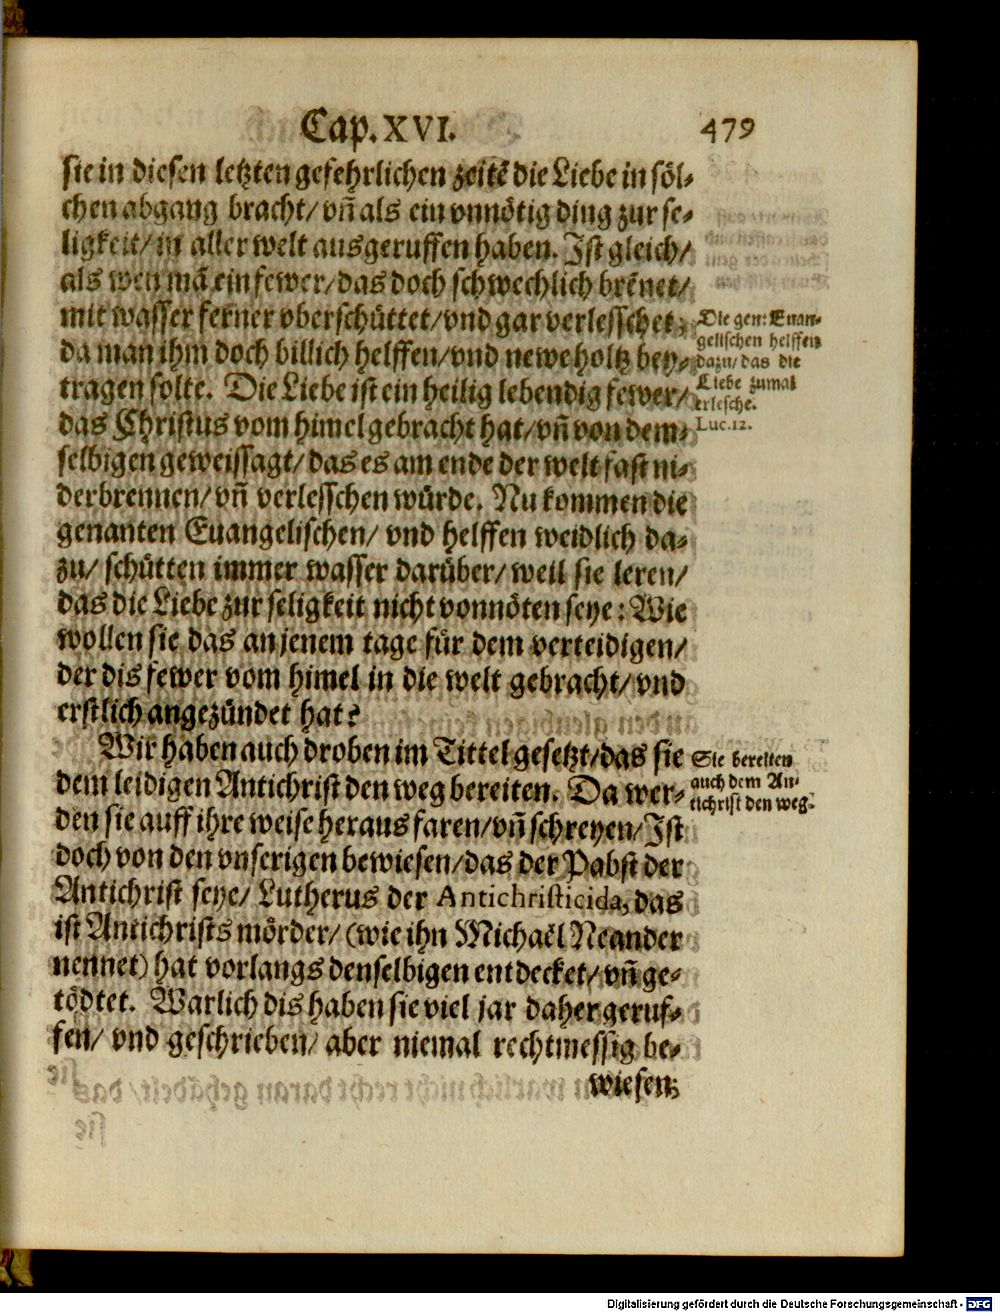 Cap. XVI. 479
sie in diesen letzten gefehrlichen zeitẽ die Liebe in söl-
chen abgang bracht/ vñ als ein vnnötig ding zur se-
ligkeit/ in aller welt ausgeruffen haben. Ist gleich/
als wen mã ein fewer/ das doch schwechlich brẽnet/
mit wasser ferner vberschüttet/ vnd gar verlesschet;
da man ihm doch billich helffen/ vnd newe holtz bey-
tragen solte. Die Liebe ist ein heilig lebendig fewer/
das Christus vom himel gebracht hat/ vñ von dem-
selbigen geweissagt/ das es am ende der welt fast ni-
derbrennen/ vñ verlesschen würde. Nu kommen die
genanten Euangelischen/ vnd helffen weidlich da-
zu/ schütten immer wasser darüber/ weil sie leren/
das die Liebe zur seligkeit nicht vonnöten seye: Wie
wollen sie das an jenem tage für dem verteidigen/
der dis fewer vom himel in die welt gebracht/ vnd
erstlich angezündet hat?
Die gen: Euan-
gelischen helffen
dazu/ das die
Liebe zumal
erlesche.
Luc. 12.
Wir haben auch droben im Tittel gesetzt/ das sie
dem leidigen Antichrist den weg bereiten. Da wer-
den sie auff ihre weise heraus faren/ vñ schreyen/ Ist
doch von den vnserigen bewiesen/ das der Pabst der
Antichrist seye/ Lutherus der Antichristicida, das
ist Antichrists mörder/ (wie ihn Michaël Neander
nennet) hat vorlangs denselbigen entdecket/ vñ ge-
tödtet. Warlich dis haben sie viel jar daher geruf-
fen/ vnd geschrieben/ aber niemal rechtmessig be-
wiesen;
Sie bereiten
auch dem An-
tichrist den weg.
Digitalisierung gefördert durch die Deutsche Forschungsgemeinschaft - DFG